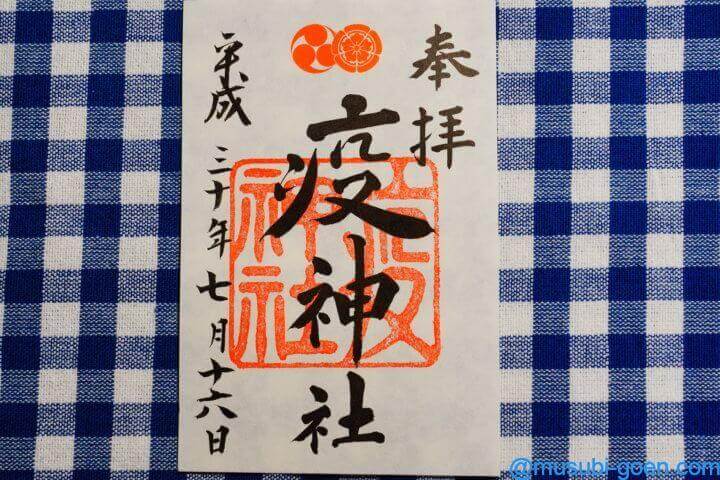 奉拝
疫神社
疫神社
平成三十年七月十六日
@musubi-goen.com